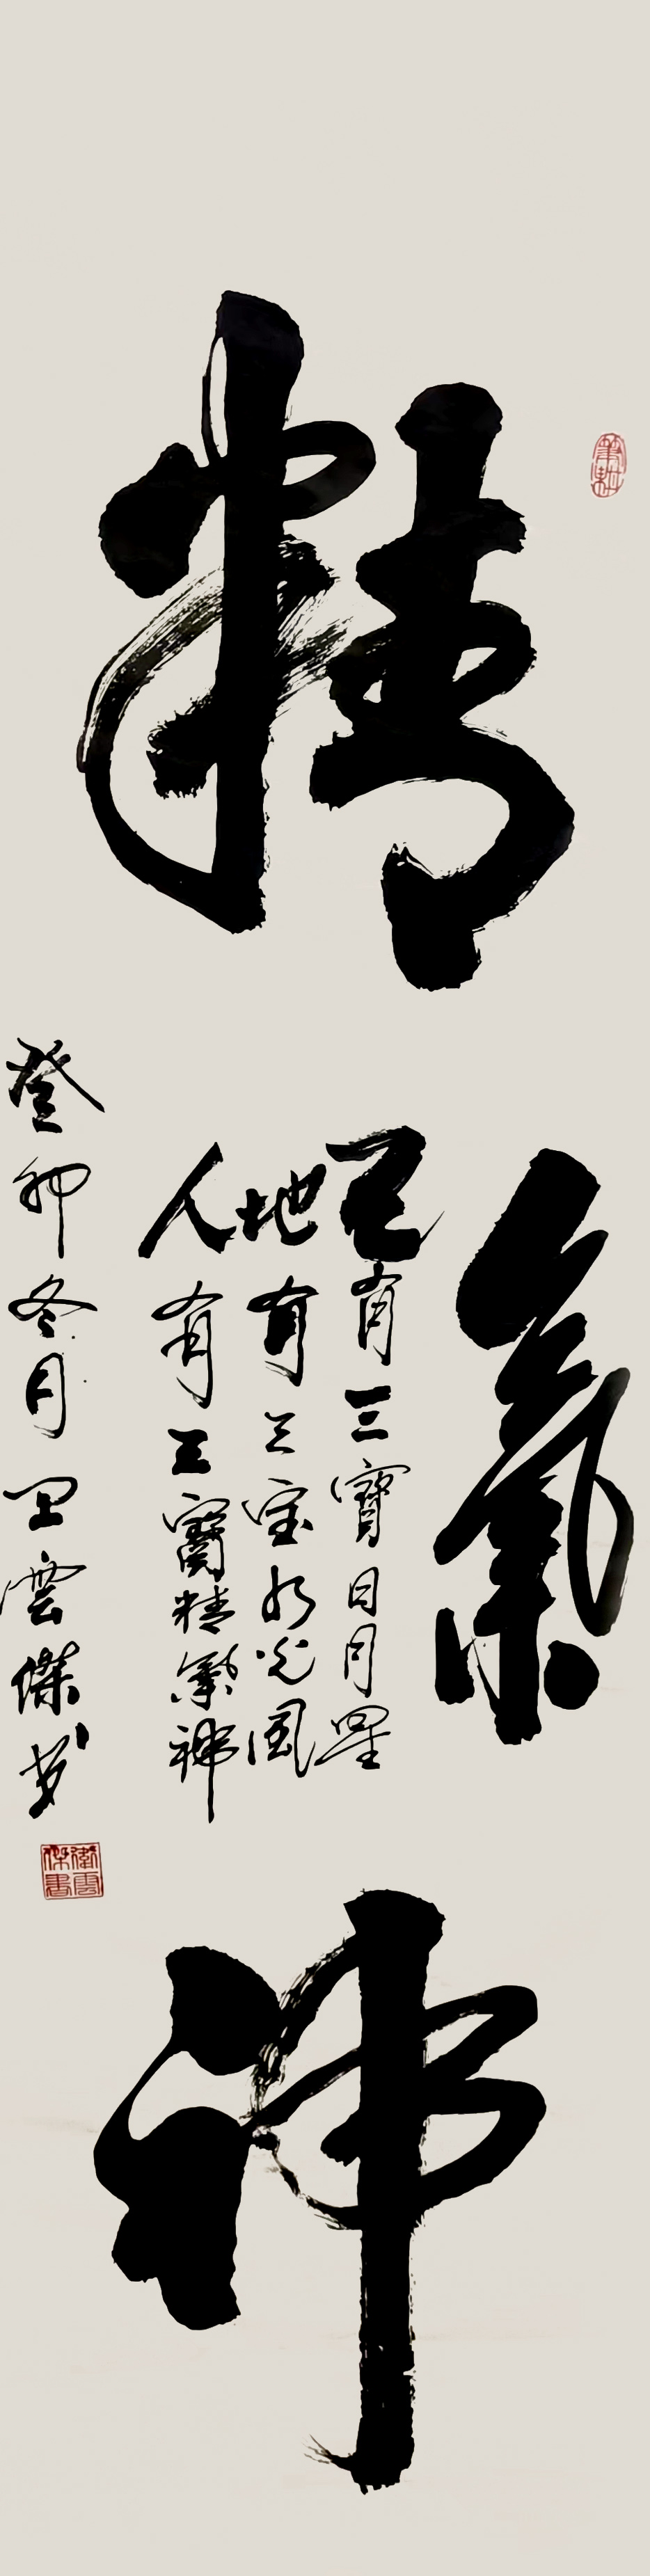 筆耕
精氣神
天有三寶日月星
地有三宝水火風
人有三寶精氣神
癸卯冬月卫雲傑书
衛雲
傑書